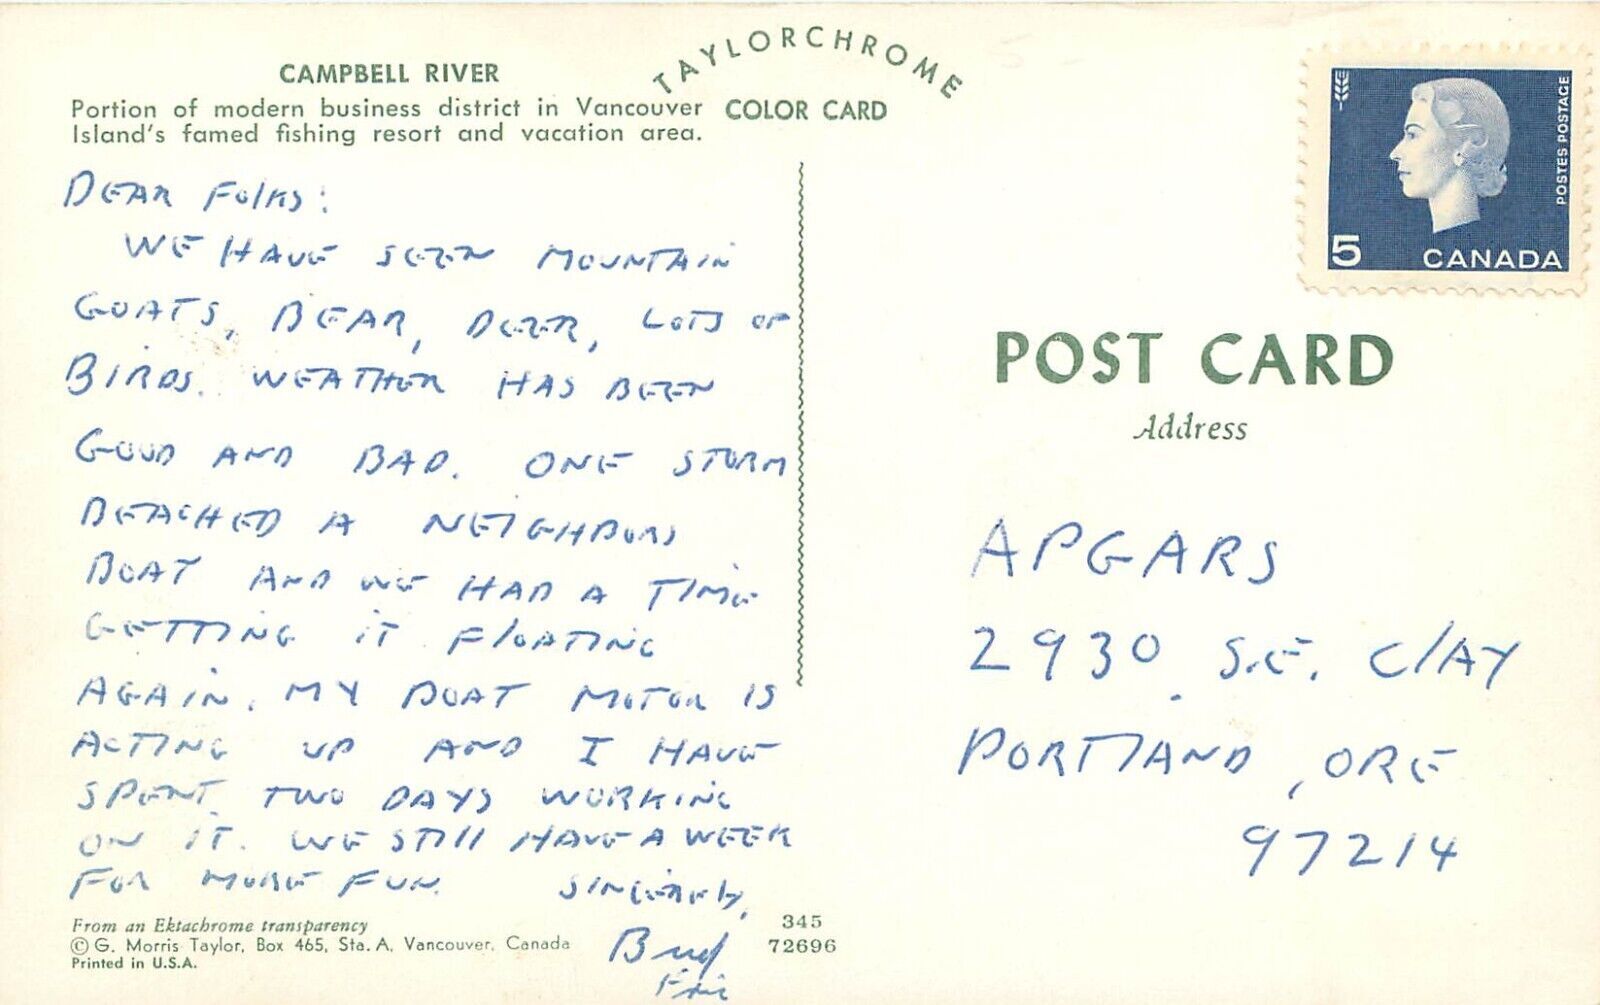 TAYLORCHROME
CAMPBELL RIVER
Portion of modern business district in Vancouver
Island's famed fishing resort and vacation area.
COLOR CARD
DEAR FOLKS:
WE HAVE SEEN MOUNTAIN
GOATS, BEAR, DEER, LOTS OF
BIRDS. WEATHER HAS BEEN
GOOD AND BAD. ONE STORM
BEACHED A NEIGHBORS
BOAT AND WE HAD A TIME
GETTING IT FLOATING
AGAIN. MY BOAT MOTOR IS
ACTING UP AND I HAVE
SPENT TWO DAYS WORKING
ON IT. WE STILL HAVE A WEEK
FOR MORE FUN.
SINCERELY,
Bud
From an Ektachrome transparency
© G. Morris Taylor, Box 465, Sta. A, Vancouver, Canada
Printed in U.S.A.
345
72696
POSTES POSTAGE
5 CANADA
POST CARD
Address
APGARS
2930 S.E. CLAY
PORTLAND, ORE
97214